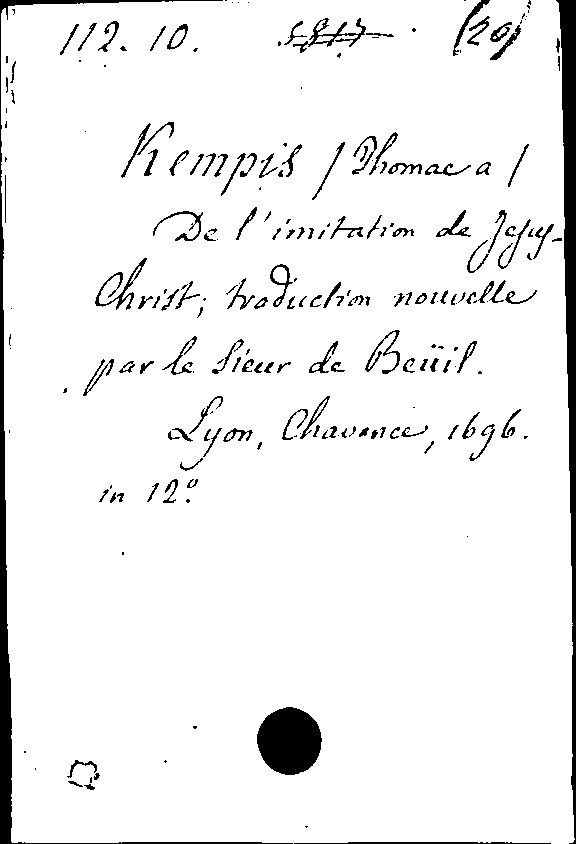 112. 10. 5817. (20)
Kempis / Thomae a /
De l'imitation de Jesus-
Christ; traduction nouvelle
par le Sieur de Beüil.
Lyon, Chavance, 1696.
in 12º